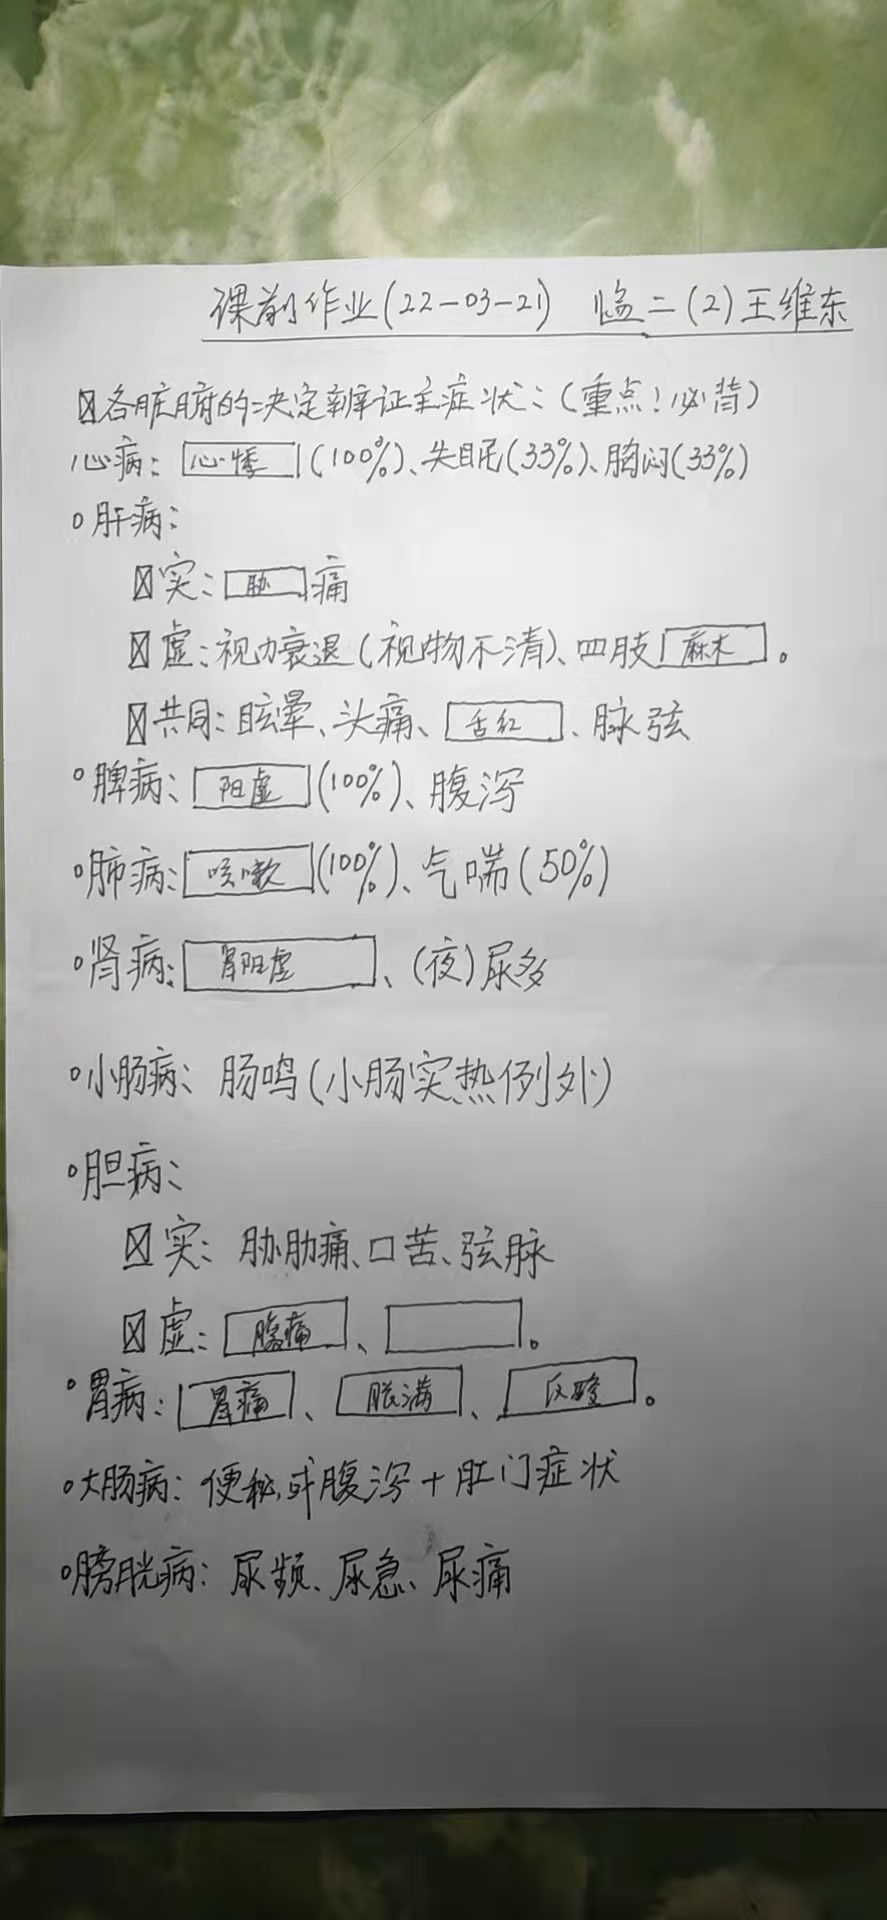 课前作业(22-03-21) 临二(2)王维东
各脏腑的决定辨证主症状:(重点!必背)
心病: 心悸 (100%)、失眠(33%)、胸闷(33%)
肝病:
实: 胁 痛
虚: 视力衰退(视物不清)、四肢 麻木 。
共同: 眩晕、头痛、 舌红 、脉弦
脾病: 阳虚 (100%)、腹泻
肺病: 咳嗽 (100%)、气喘(50%)
肾病: 肾阳虚 、(夜)尿多
小肠病: 肠鸣(小肠实热例外)
胆病:
实: 胁肋痛、口苦、弦脉
虚: 腹痛 、 。
胃病: 胃痛 、 胀满 、 反酸 。
大肠病: 便秘或腹泻+肛门症状
膀胱病: 尿频、尿急、尿痛